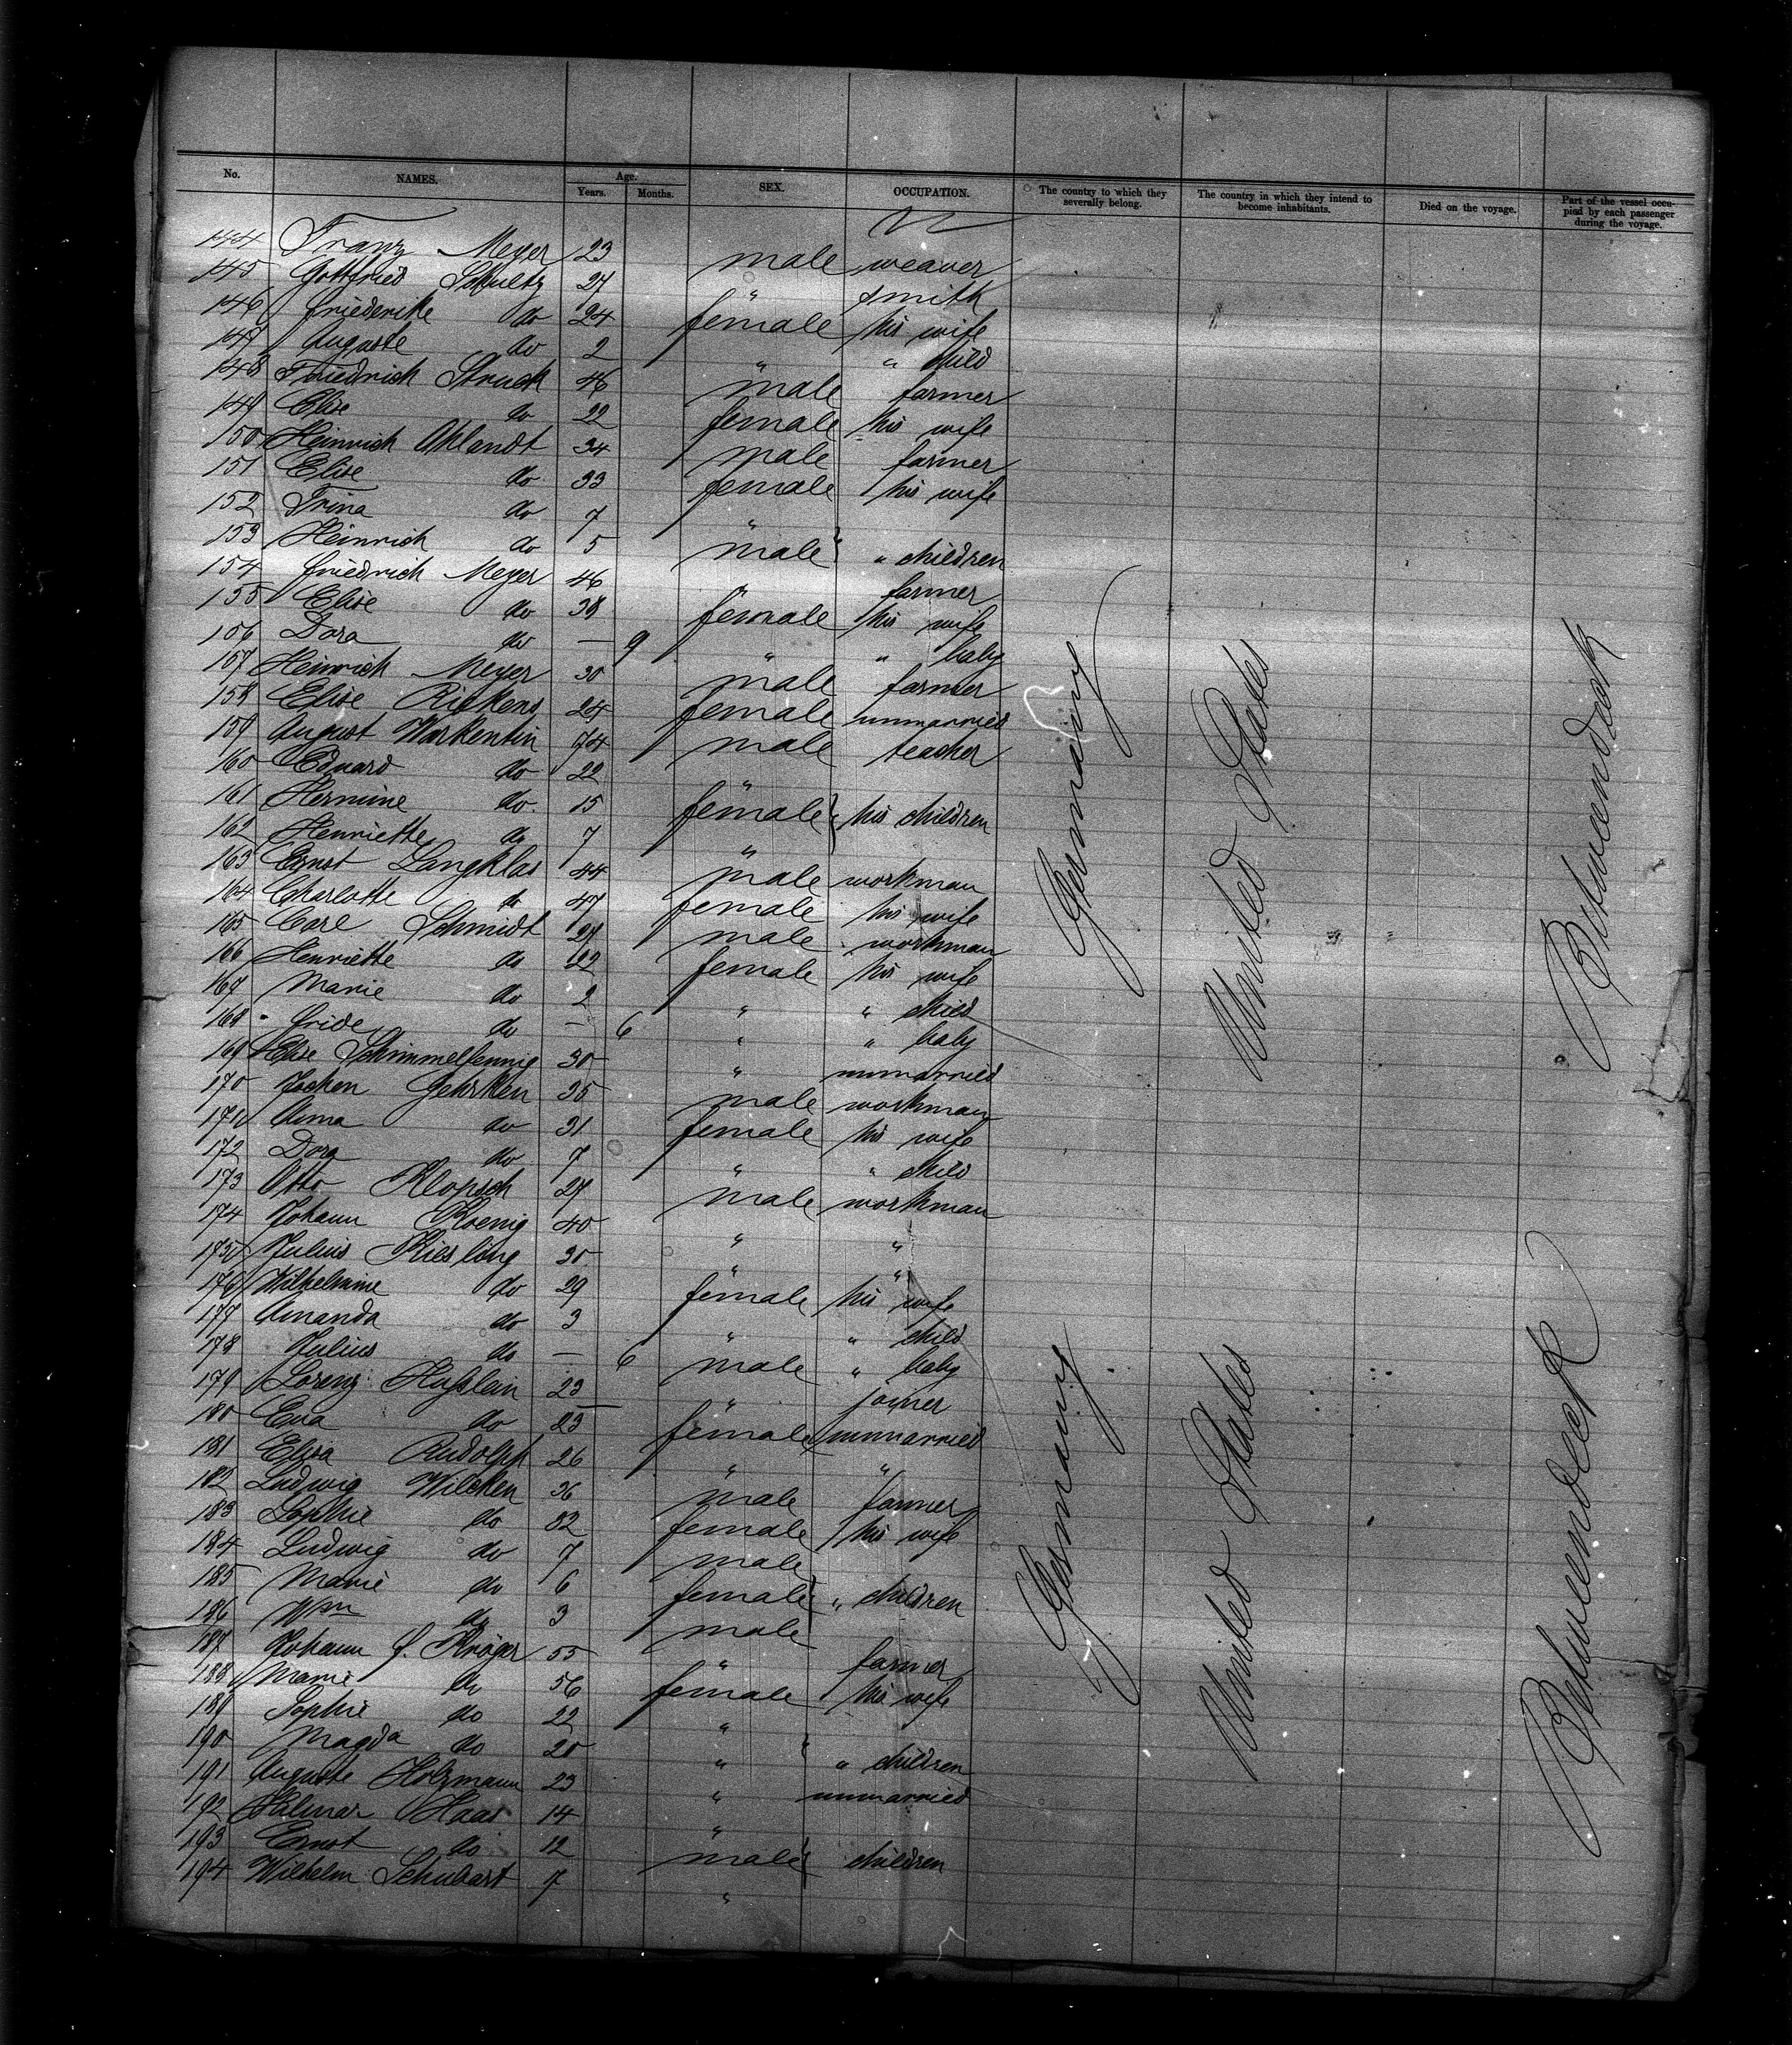 No. NAMES. Age. Years. Months. SEX. OCCUPATION. The country to which they severally belong. The country in which they intend to become inhabitants. Died on the voyage. Part of the vessel occupied by each passenger during the voyage.
144 Franz Meyer 23 male weaver
145 Gottfried Schultz 27 " smith
146 Friederike do 24 female his wife
147 Auguste do 2 " " child
148 Friedrich Struck 46 male farmer
149 Elise do 22 female his wife
150 Heinrich Ahlandt 34 male farmer
151 Elise do 33 female his wife
152 Trina do 7 "
153 Heinrich do 5 male " children
154 Friedrich Meyer 46 " farmer
155 Elise do 38 female his wife
156 Dora do — 9 " " baby
157 Heinrich Meyer 30 male farmer
158 Elise Rickens 24 female unmarried
159 August Warkentin 74 male teacher
160 Eduard do 22 "
161 Hermine do 15 female his children
162 Henriette do 7 "
163 Ernst Langklas 44 male workman
164 Charlotte do 47 female his wife
165 Carl Schmidt 27 male workman
166 Henriette do 22 female his wife
167 Marie do 2 " " child
168 Fride do — 6 " " baby
169 Elise Schimmelfennig 30 " unmarried
170 Jochen Gehrken 35 male workman
171 Anna do 31 female his wife
172 Dora do 7 " " child
173 Otto Klopsch 27 male workman
174 Johann Koenig 40 " "
175 Julius Kiesling 30 " "
176 Wilhelmine do 29 female his wife
177 Amanda do 3 " " child
178 Julius do — 6 male " baby
179 Lorenz Husslein 23 " joiner
180 Eva do 23 female unmarried
181 Elisa Rudolph 26 " "
182 Ludwig Wilcken 36 male farmer
183 Sophie do 32 female his wife
184 Ludwig do 7 male
185 Marie do 6 female " children
186 Wm do 3 male
187 Johann J. Kröger 55 " farmer
188 Marie do 56 female his wife
189 Sophie do 22 "
190 Magda do 20 " " children
191 Auguste Holzmann 23 " unmarried
192 Haas 14 "
193 Ernst do 12 male children
194 Wilhelm Schubart 7 "
Germany
United States
Betweendeck
Germany
United States
Betweendeck